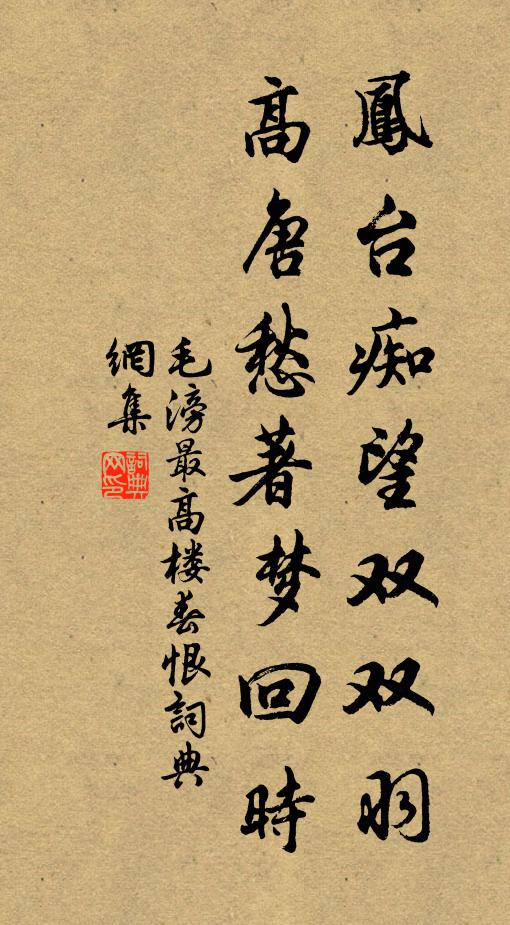 鳳台痴望双双羽
高唐愁著梦回時
毛滂最高楼春恨詞典
網集
詞典网印